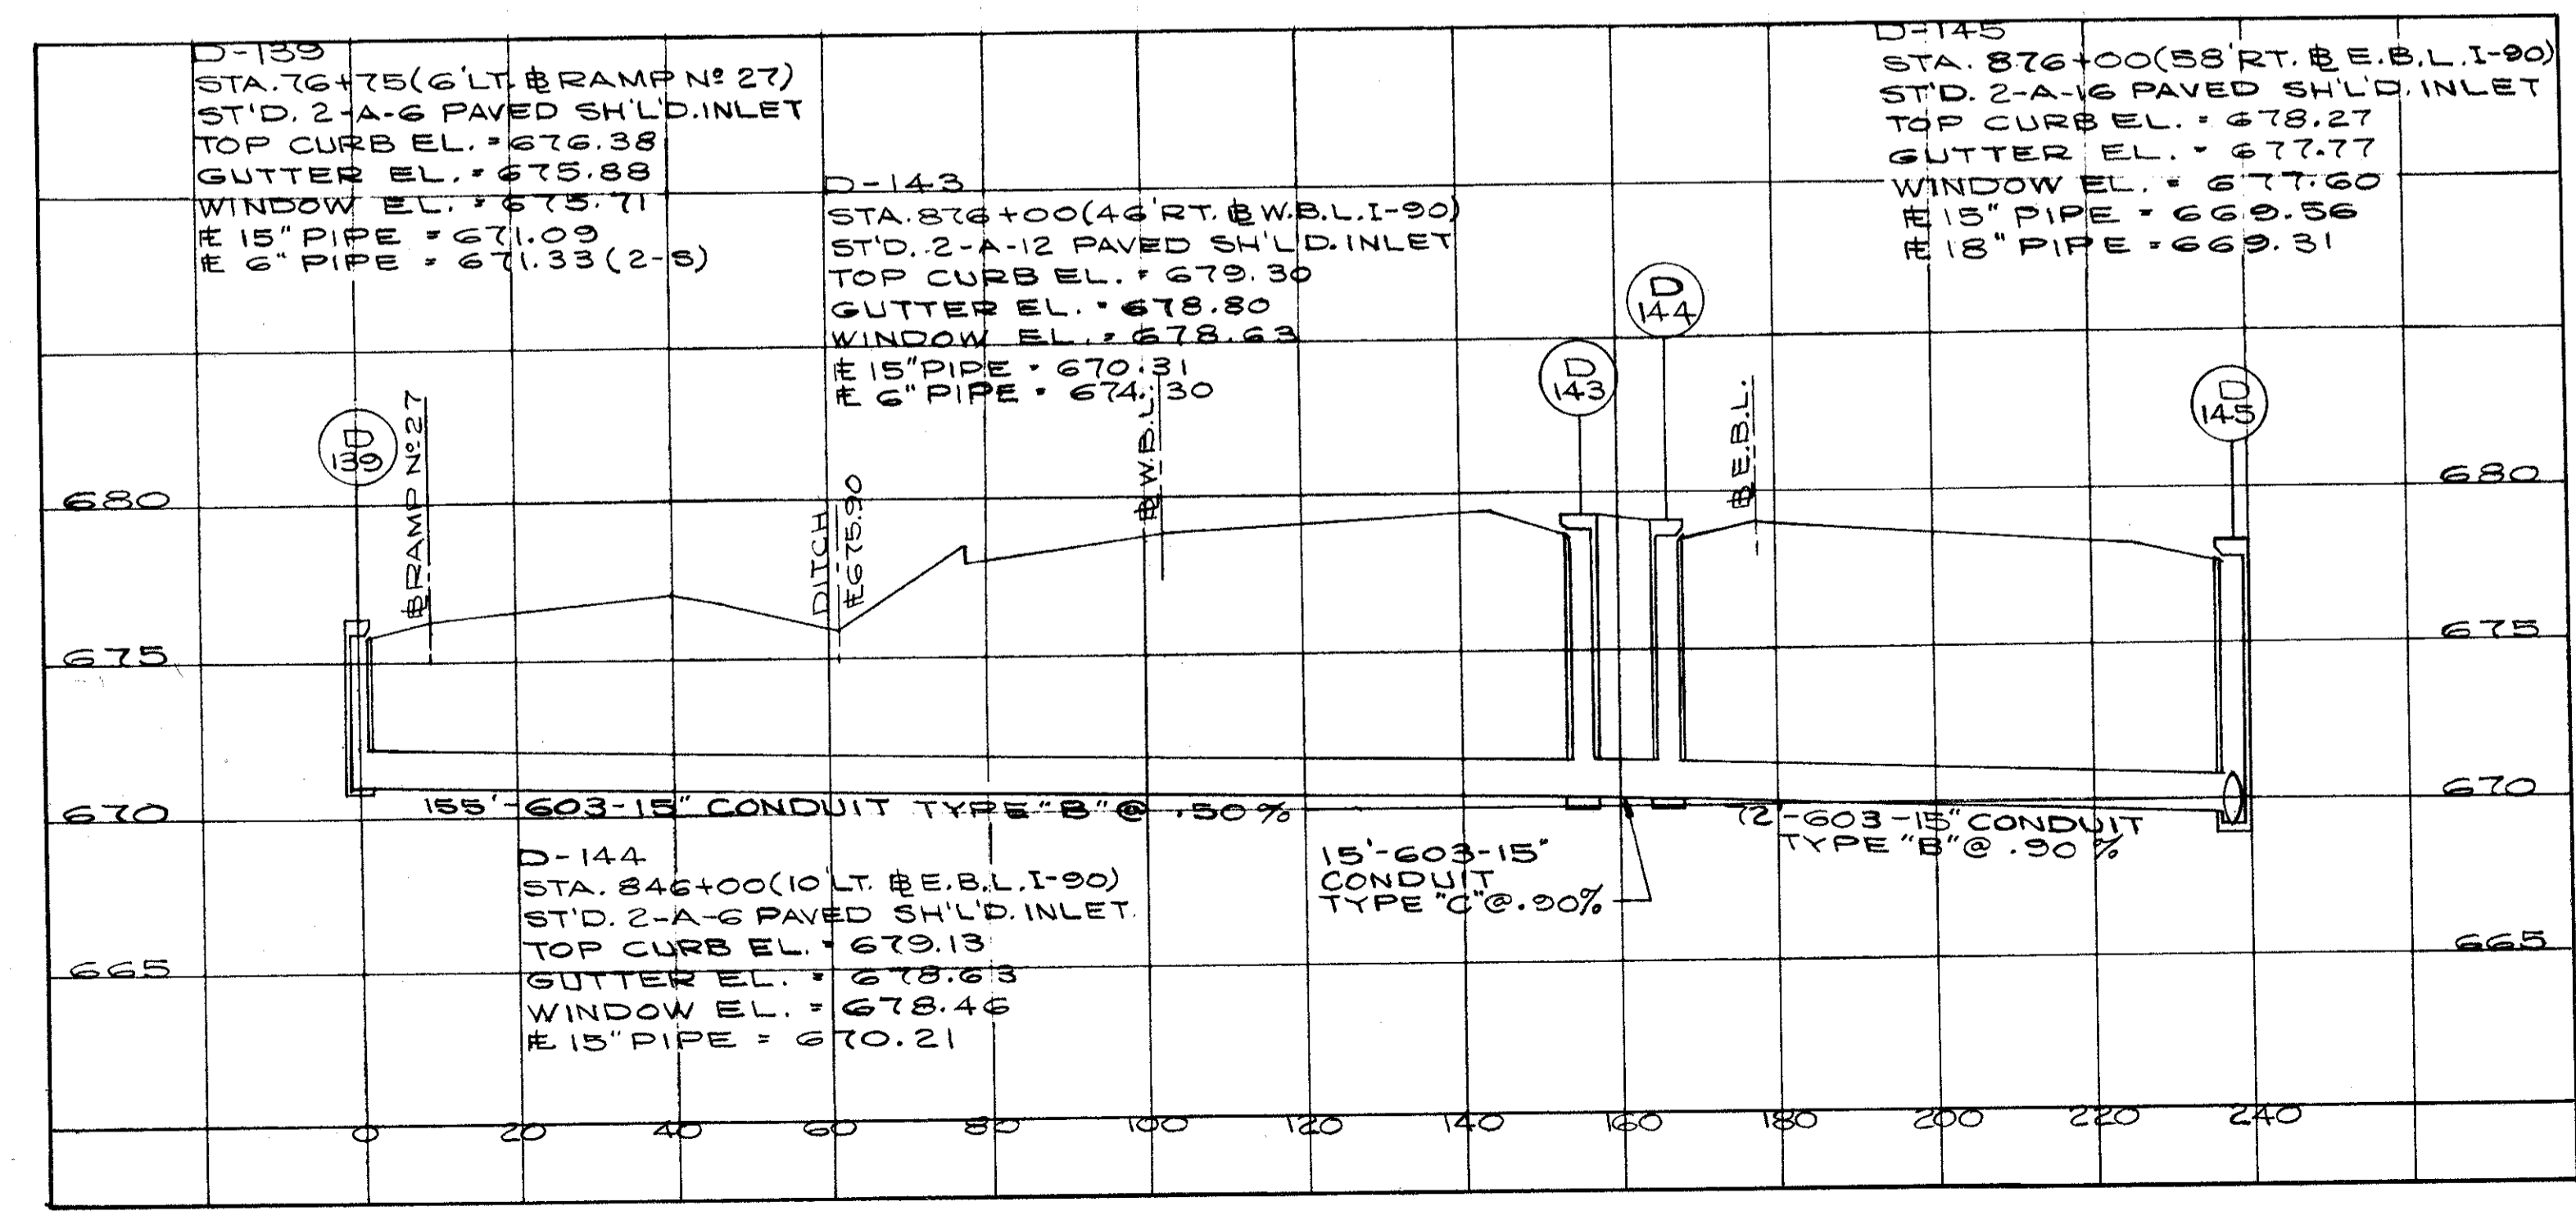 D-139
STA. 76+75(6'LT. ⅊ RAMP Nº 27)
ST'D. 2-A-6 PAVED SH'L'D. INLET
TOP CURB EL. = 676.38
GUTTER EL. = 675.88
WINDOW EL. = 675.71
℄ 15" PIPE = 671.09
℄ 6" PIPE = 671.33 (2-S)
D-143
STA. 876+00(46'RT. ⅊ W.B.L. I-90)
ST'D. 2-A-12 PAVED SH'L'D. INLET
TOP CURB EL. = 679.30
GUTTER EL. = 678.80
WINDOW EL. = 678.63
℄ 15" PIPE = 670.31
℄ 6" PIPE = 674.30
D-145
STA. 876+00(58'RT. ⅊ E.B.L. I-90)
ST'D. 2-A-16 PAVED SH'L'D. INLET
TOP CURB EL. = 678.27
GUTTER EL. = 677.77
WINDOW EL. = 677.60
℄ 15" PIPE = 669.56
℄ 18" PIPE = 669.31
D
139
⅊ RAMP Nº 27
DITCH
℄ 675.90
⅊ W.B.L.
D
143
D
144
⅊ E.B.L.
D
145
680
680
675
675
670
670
665
665
155'-603-15" CONDUIT TYPE "B" @ .50%
15'-603-15"
CONDUIT
TYPE "C" @ .90%
72'-603-15" CONDUIT
TYPE "B" @ .90%
D-144
STA. 846+00(10'LT. ⅊ E.B.L. I-90)
ST'D. 2-A-6 PAVED SH'L'D. INLET.
TOP CURB EL. = 679.13
GUTTER EL. = 678.63
WINDOW EL. = 678.46
℄ 15" PIPE = 670.21
0 20 40 60 80 100 120 140 160 180 200 220 240